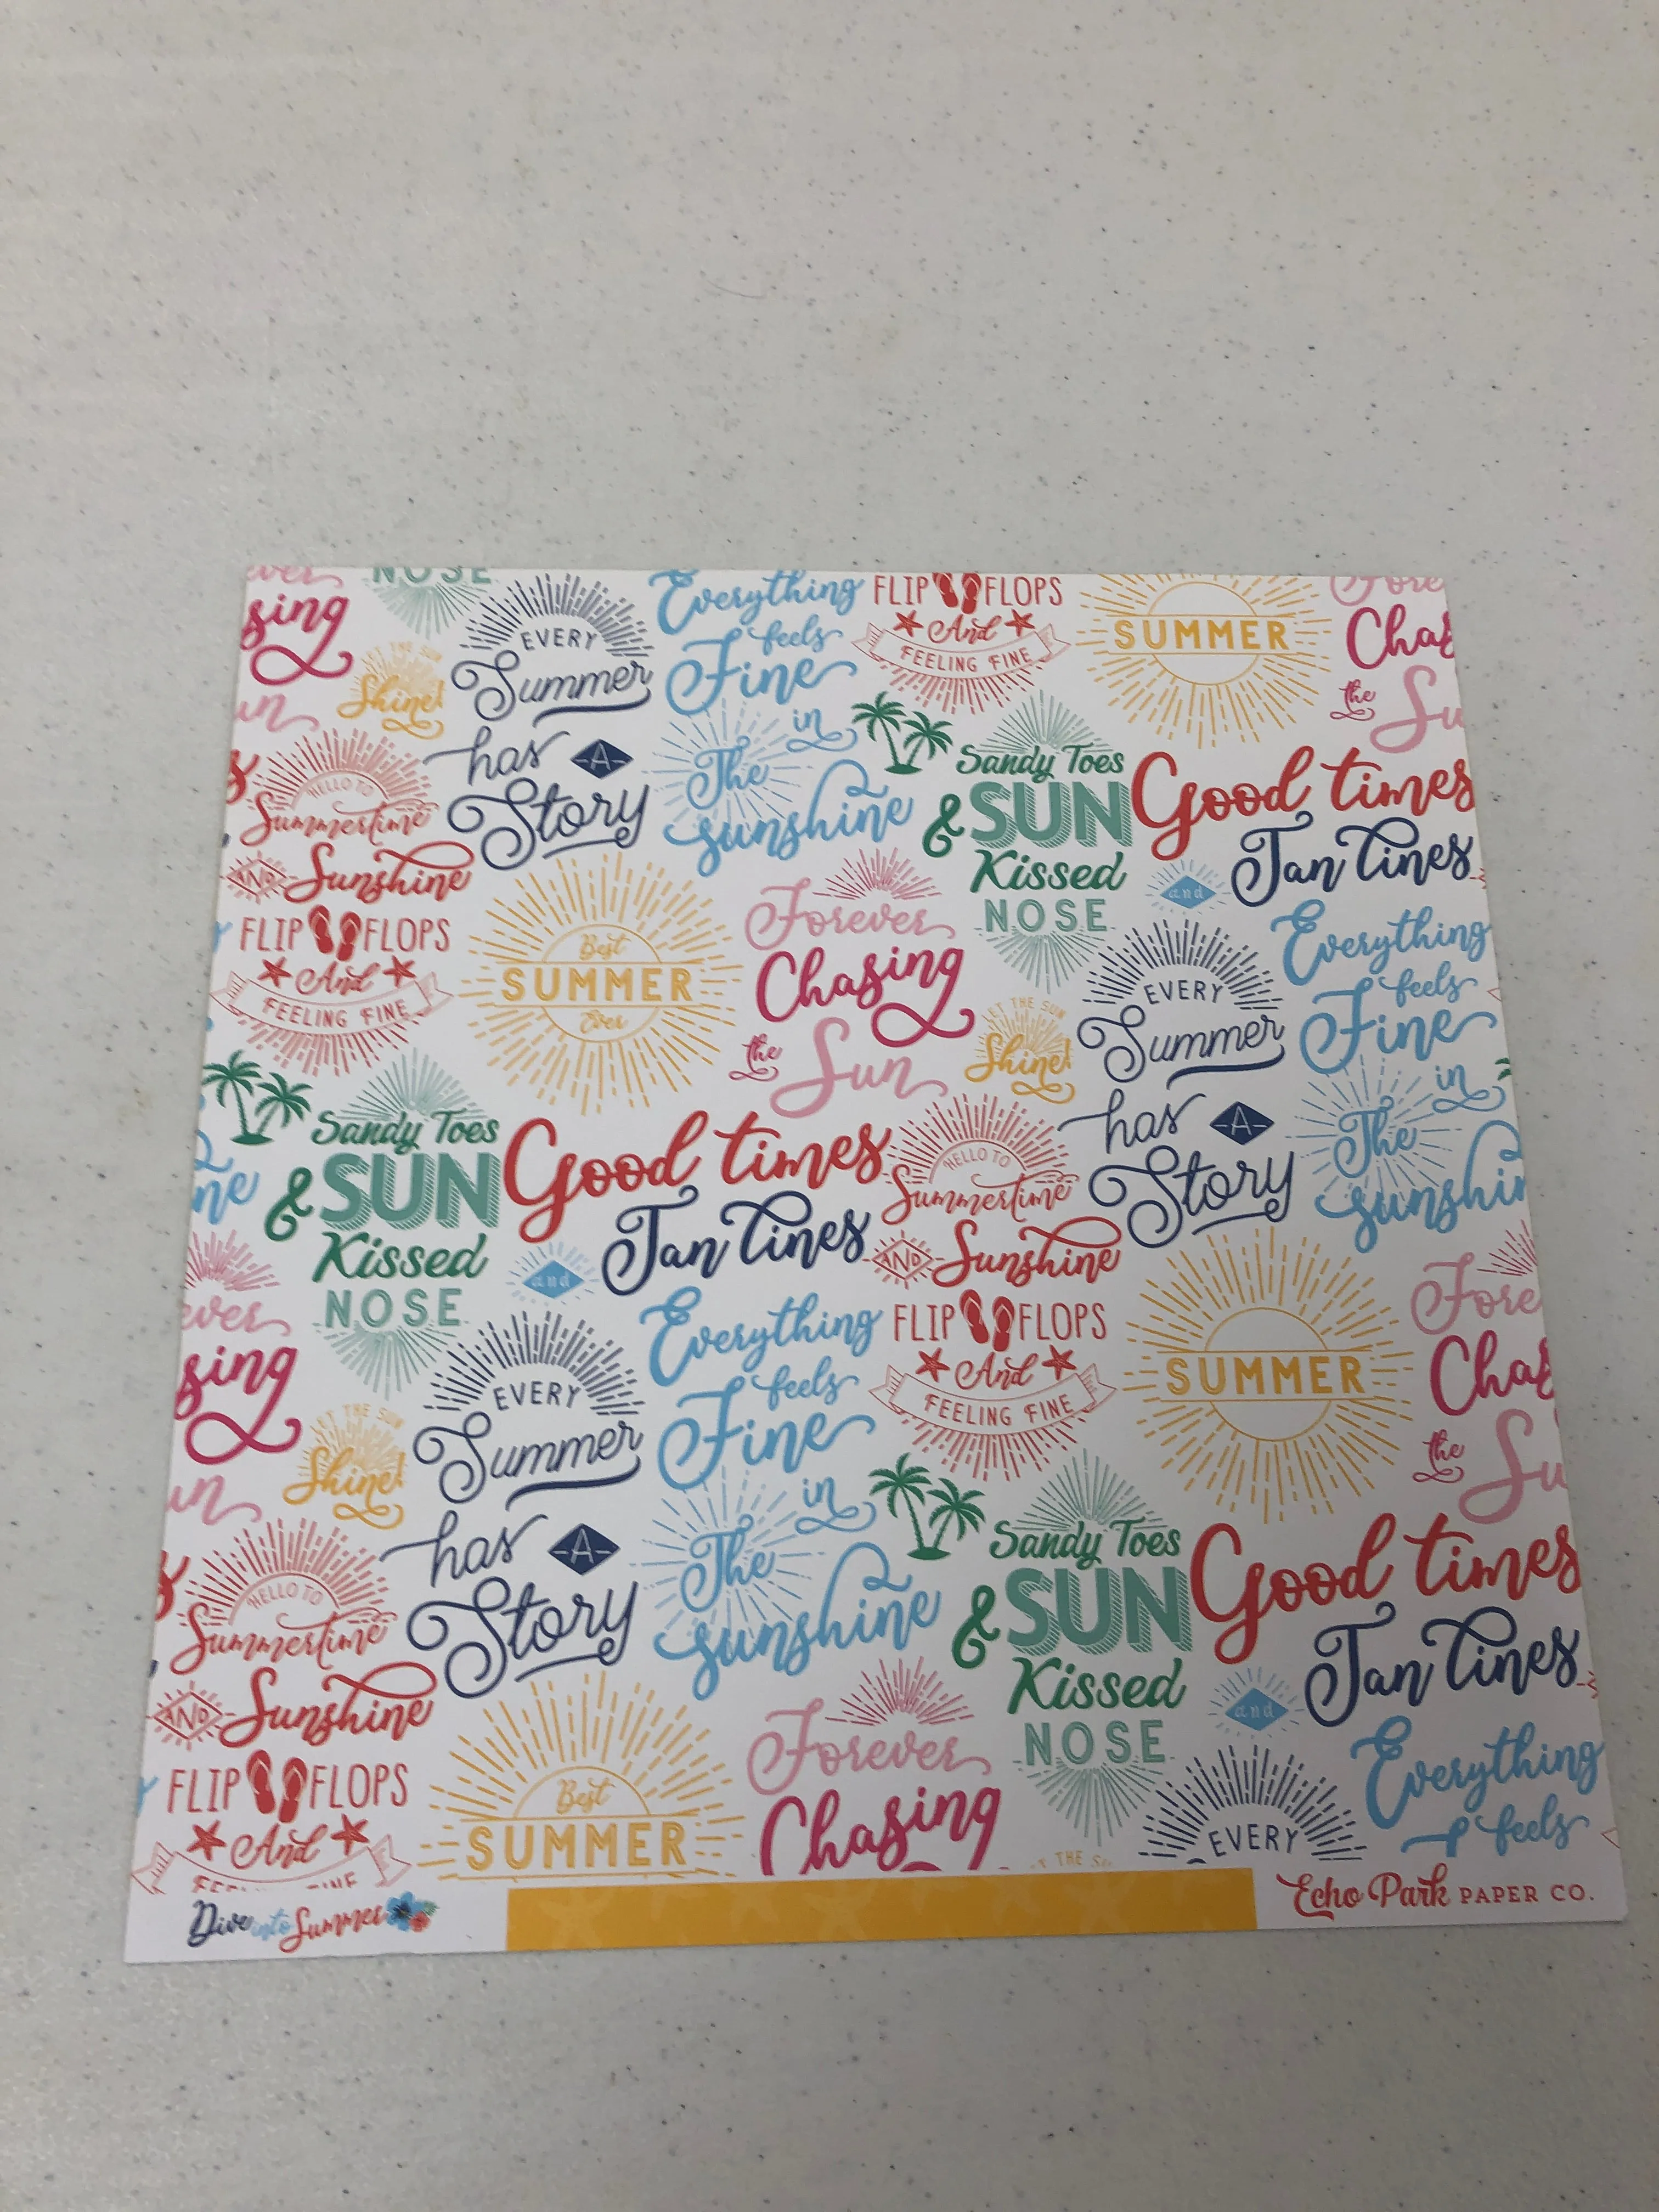 NOSE
Everything
FLIP FLOPS
sing
EVERY
feels
And
SUMMER
Chas
LET THE SUN
Shine!
Summer
Fine
FEELING FINE
the
Su
has A
in
The
Sandy Toes
Good times
HELLO TO
Summertime
Story
sunshine
& SUN
Tan Lines
AND Sunshine
Kissed
and
FLIP FLOPS
Best
Forever
NOSE
Everything
And
SUMMER
Chasing
EVERY
feels
FEELING FINE
Ever
LET THE SUN
Shine!
Summer
Fine
the Sun
in
has A
The
Sandy Toes
Good times
HELLO TO
Summertime
Story
sunshin
& SUN
Tan Lines
AND Sunshine
Kissed
and
NOSE
Everything
FLIP FLOPS
Fore
ever
sing
EVERY
feels
And
SUMMER
Chas
LET THE SUN
Shine!
Summer
Fine
FEELING FINE
the
Su
has A
in
The
Sandy Toes
Good times
HELLO TO
Summertime
Story
sunshine
& SUN
Tan Lines
AND Sunshine
Kissed
and
FLIP FLOPS
Best
Forever
NOSE
Everything
And
SUMMER
Chasing
EVERY
feels
Dive into Summer
Echo Park PAPER CO.